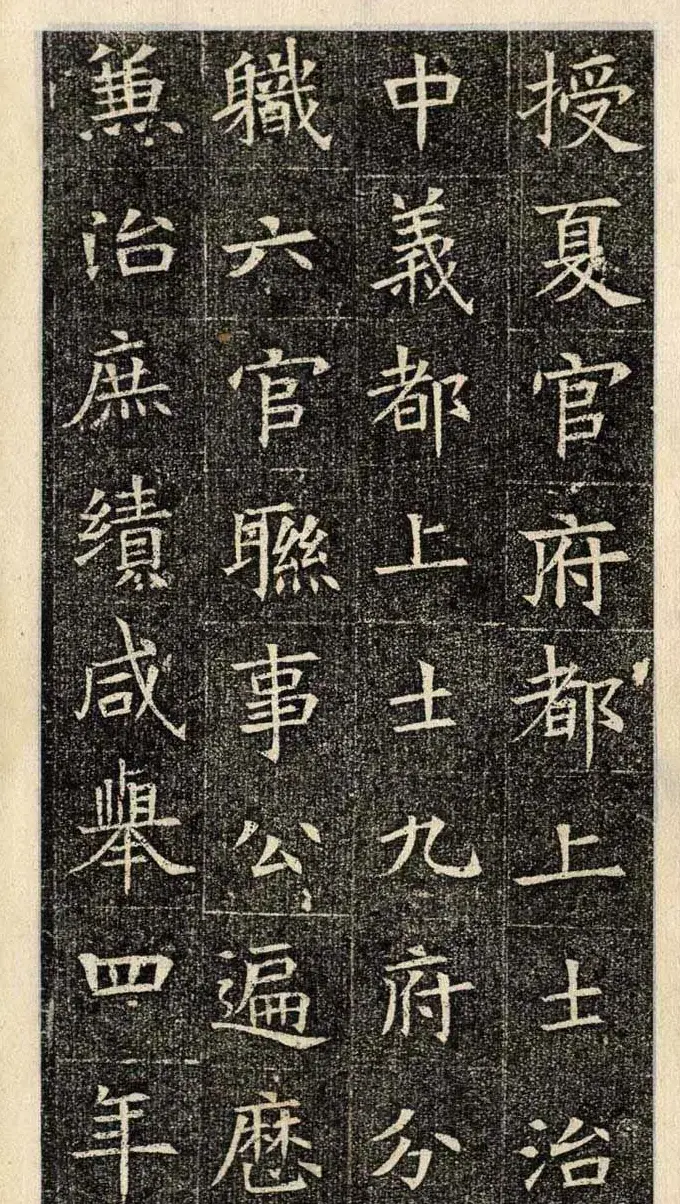 授夏官府都上士治
中義都上士九府分
軄六官聮事公遍歴
兼治庶績咸舉四年